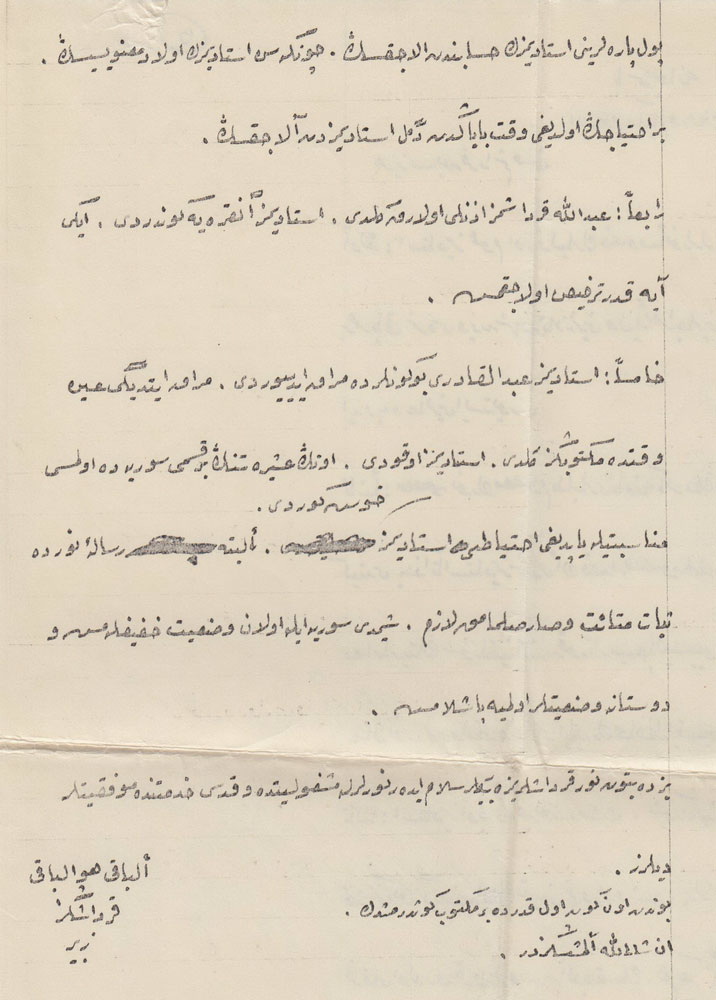 پول پاره لرینی استادیمزك حسابندن آلاجقسڭ . چونكه سن استادیمزك اولاد معنویسیسڭ .
بر احتیاجڭ اولدیغی وقت بابا كدن دگل استادیمزدن آلاجقسڭ .
رابعاً : عبدالله قرداشمز اذنلی اولارق كلدی . استادیمز آنقره یه كوندردی . ایكی
آیه قدر ترخیص اولاجقمش .
خامساً : استادیمز عبدالقادری بو كونلرده مراق ایدییوردی . مراق ایتدیگی عین
وقتده مكتوبڭز كلدی . استادیمز اوقودی . اونڭ عشیرتنڭ بر قسمی سوریه ده اولمسی
مناسبتیله یاپدیغی احتیاطی استادیمز خوش كوردی . ألبته رسالۀ نورده
ثبات متانت وصارصلمامق لازم . شیمدی سوریه ایله اولان وضعیت خفیفله مش و
دوستانه وضعیتلر اولمیه باشلامش .
بزده بتون نور قرداشلریمزه بیڭلر سلام ایدر نورلرله مشغولیتده وقدسی خدمتنده موفقیتلر
دیلرز .
بوندن اون كون اول قدرده بر مكتوب كوندرمشدك .
ان شاءالله آلمشسڭزدر .
ألباقی هو الباقی
قرداشڭز
زبیر